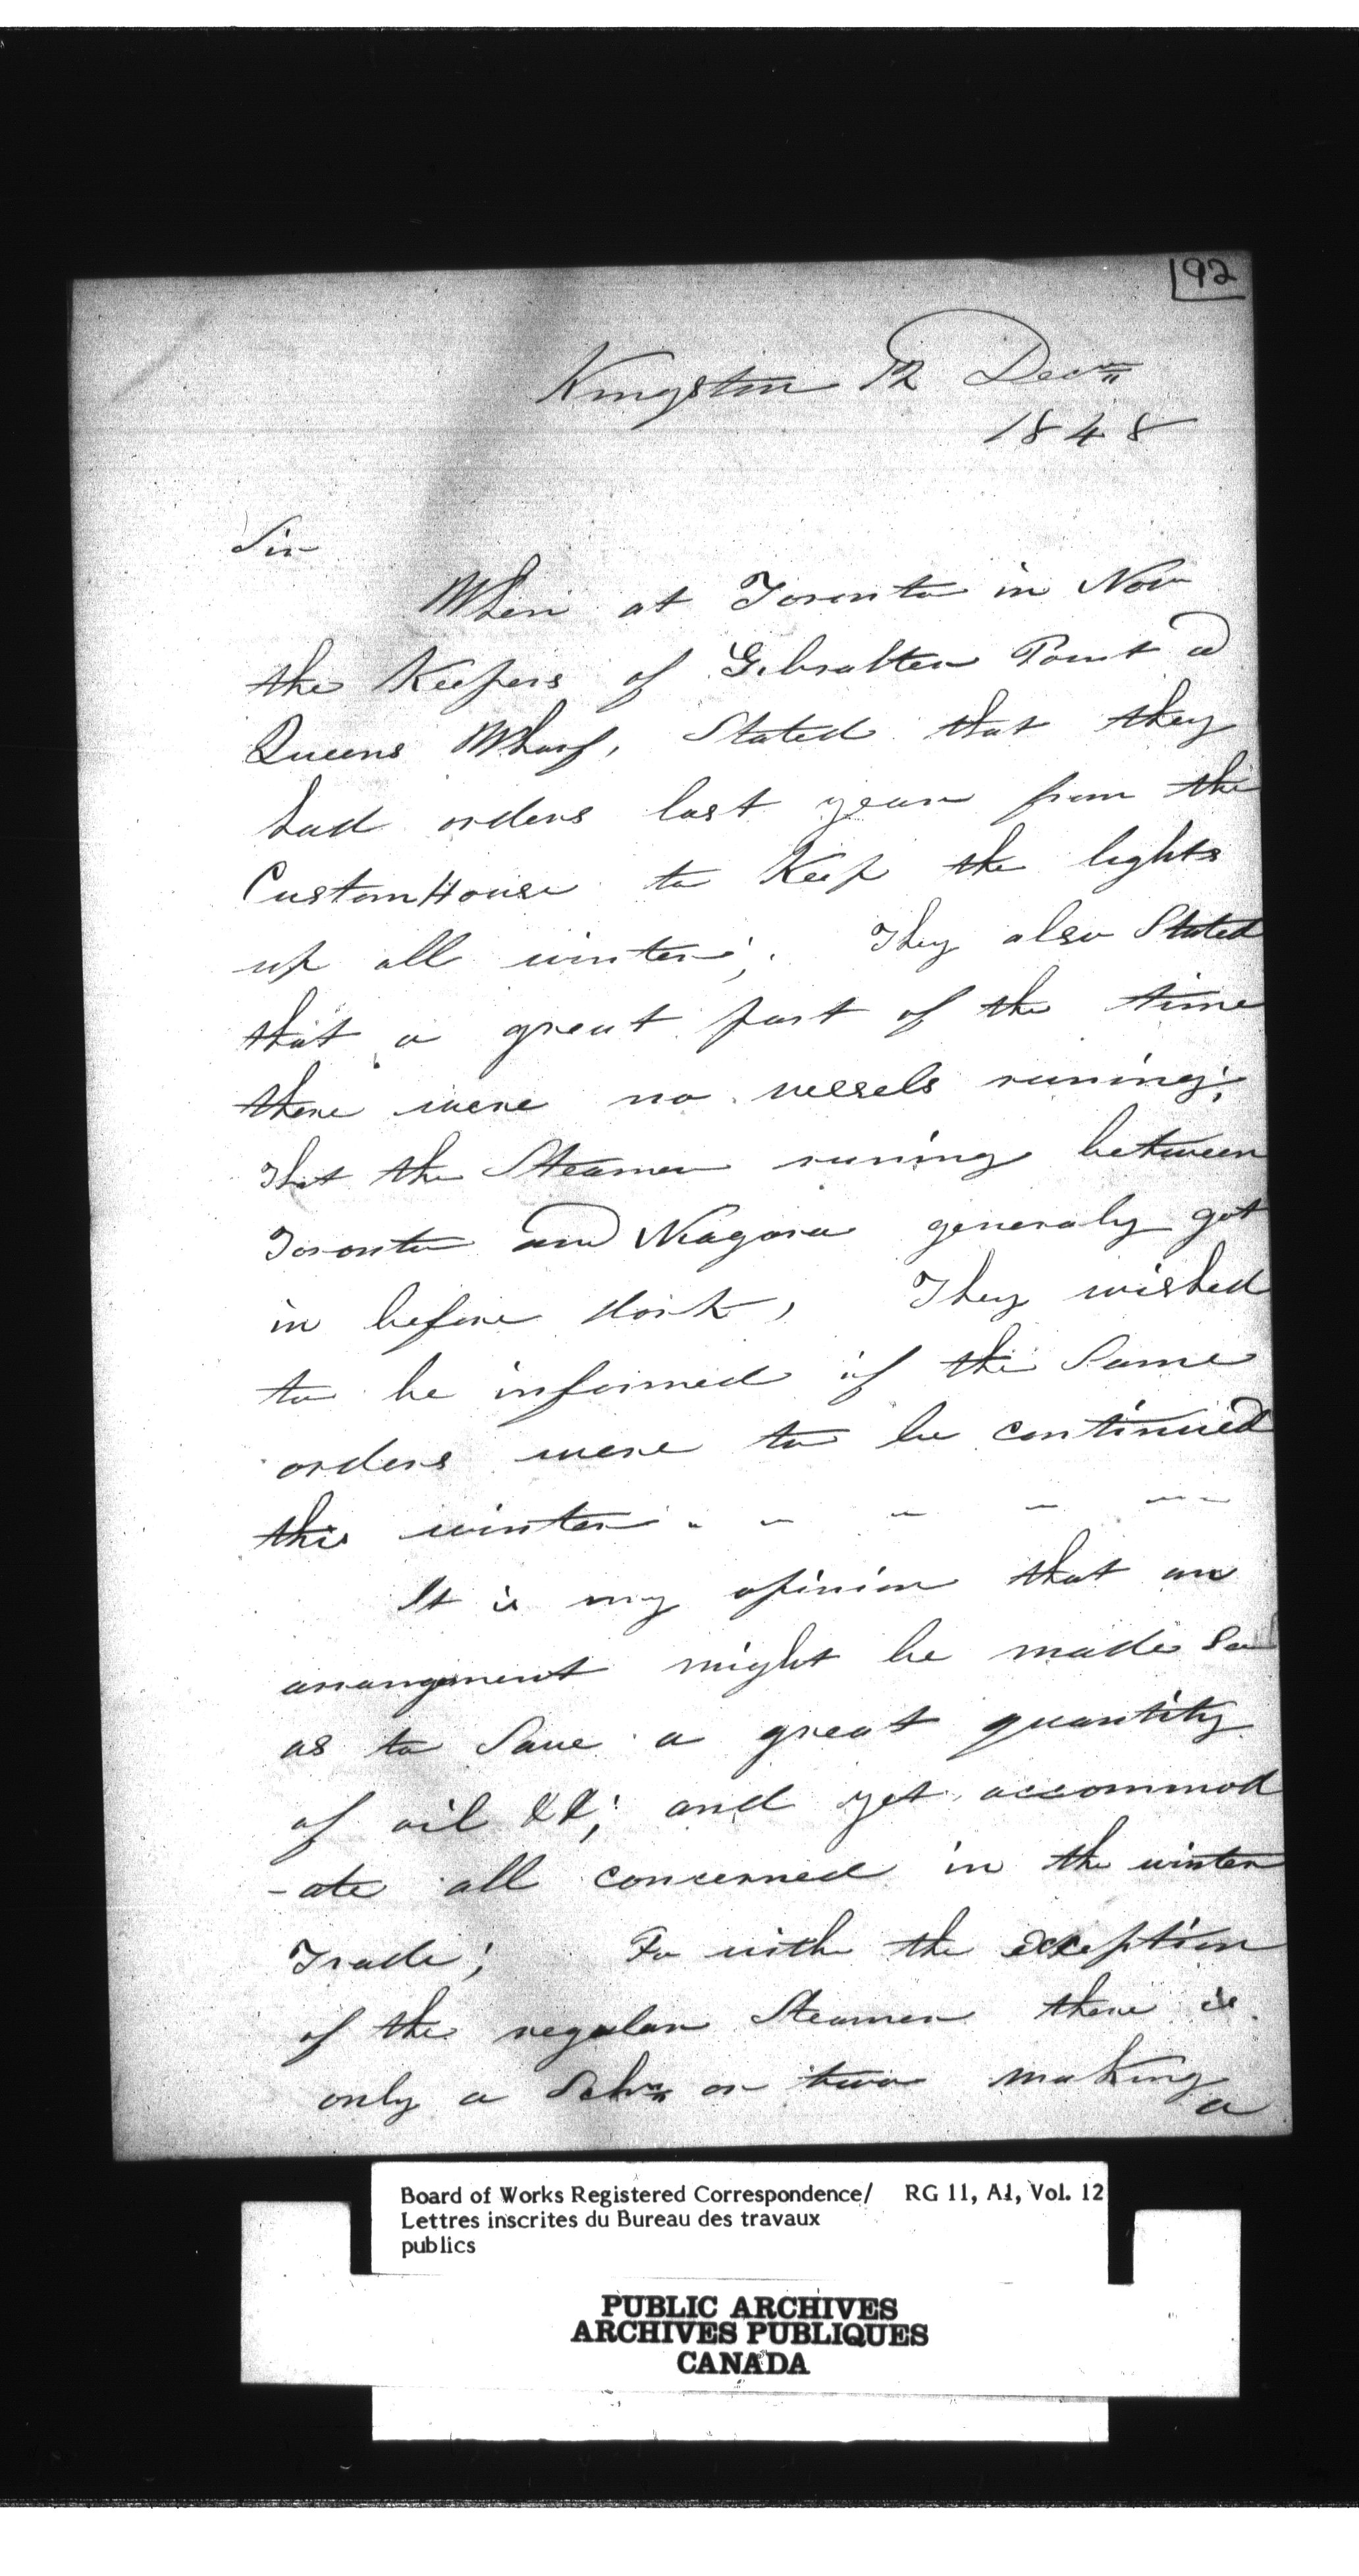 92
Kingston 12 Decr
1848
Sir
When at Toronto in Nov
the Keepers of Gibralter Point and
Queens Wharf, Stated that they
had orders last year from the
CustomHouse to Keep the lights
up all winter; They also Stated
that a great part of the time
there were no vessels runing;
That the Steamer runing between
Toronto and Niagara generaly got
in before dark, They wished
to be informed if the Same
orders were to be continued
this winter - - - - -
It is my opinion that an
arrangement might be made So
as to Save a great quantity
of oil &&; and yet accommod
-ate all concerned in the winter
Trade; Fo with the exception
of the regular Steamer there is
only a Schr or two making
a
Board of Works Registered Correspondence/ RG 11, A1, Vol. 12
Lettres inscrites du Bureau des travaux
publics
PUBLIC ARCHIVES
ARCHIVES PUBLIQUES
CANADA